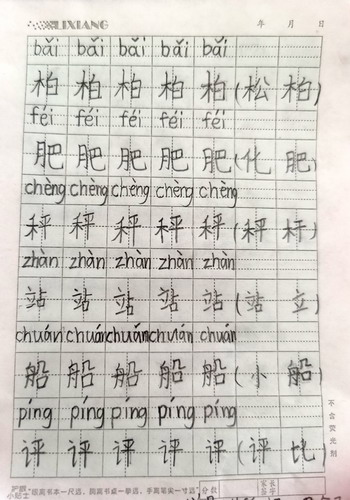 LIXIANG 年 月 日
bǎi bǎi bǎi bǎi bǎi
柏 柏 柏 柏 柏 (松 柏)
féi féi féi féi féi
肥 肥 肥 肥 肥 (化 肥)
chèng chèng chèng chèng chèng
秤 秤 秤 秤 秤 (秤 杆)
zhàn zhàn zhàn zhàn zhàn
站 站 站 站 站 (站 立)
chuán chuán chuán chuán chuán
船 船 船 船 船 (小 船)
píng píng píng píng píng
评 评 评 评 评 (评 比)
不含荧光剂
小贴士 "眼离书本一尺远，胸离书桌一拳远，手离笔尖一寸远" 分数 家长签字